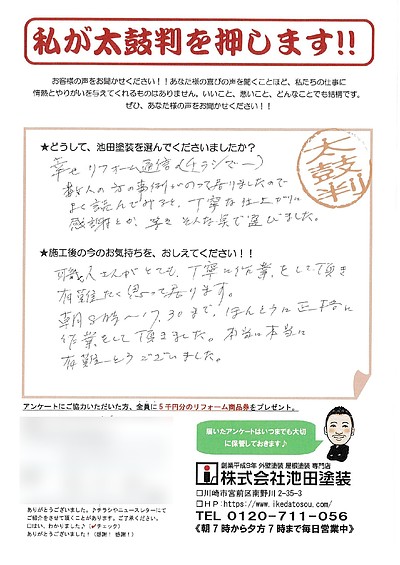 私が太鼓判を押します!!
お客様の声をお聞かせください！！あなた様の喜びの声を聞くことほど、私たちの仕事に
情熱とやりがいを与えてくれるものはありません。いいこと、悪いこと、どんなことでも結構です。
ぜひ、あなた様の声をお聞かせください！！
★どうして、池田塗装を選んでくださいましたか？
太鼓判
幸せリフォーム通信(チラシで―)
数人の方の事例がのって居りましたので
よく読んでみると、丁寧な仕上がりに
感謝とか、
そんな異で選びました。
★施工後の今のお気持ちを、おしえてください！！
職人さんがとても、丁寧に作業をして頂き
有難たく思って居ります。
朝8時〜17,30まで、ほんとうに正確に
作業をして頂きました。本当に本当に
有難とうございました。
アンケートにご協力いただいた方、全員に５千円分のリフォーム商品券をプレゼント。
届いたアンケートはいつまでも大切
に保管しておきます♪
創業平成9年 外壁塗装 屋根塗装 専門店
株式会社池田塗装
□川崎市宮前区南野川2-35-3
□ＨＰ：https://www.ikedatosou.com/
TEL 0120-711-056
《朝7時から夕方7時まで毎日営業中》
ありがとうございました。♪チラシやニュースレターにて
ご紹介をさせて頂くことがあります。ご了承ください。
□はい、わかりました♪（✓チェック）
ありがとうございました！（感謝！感謝！）